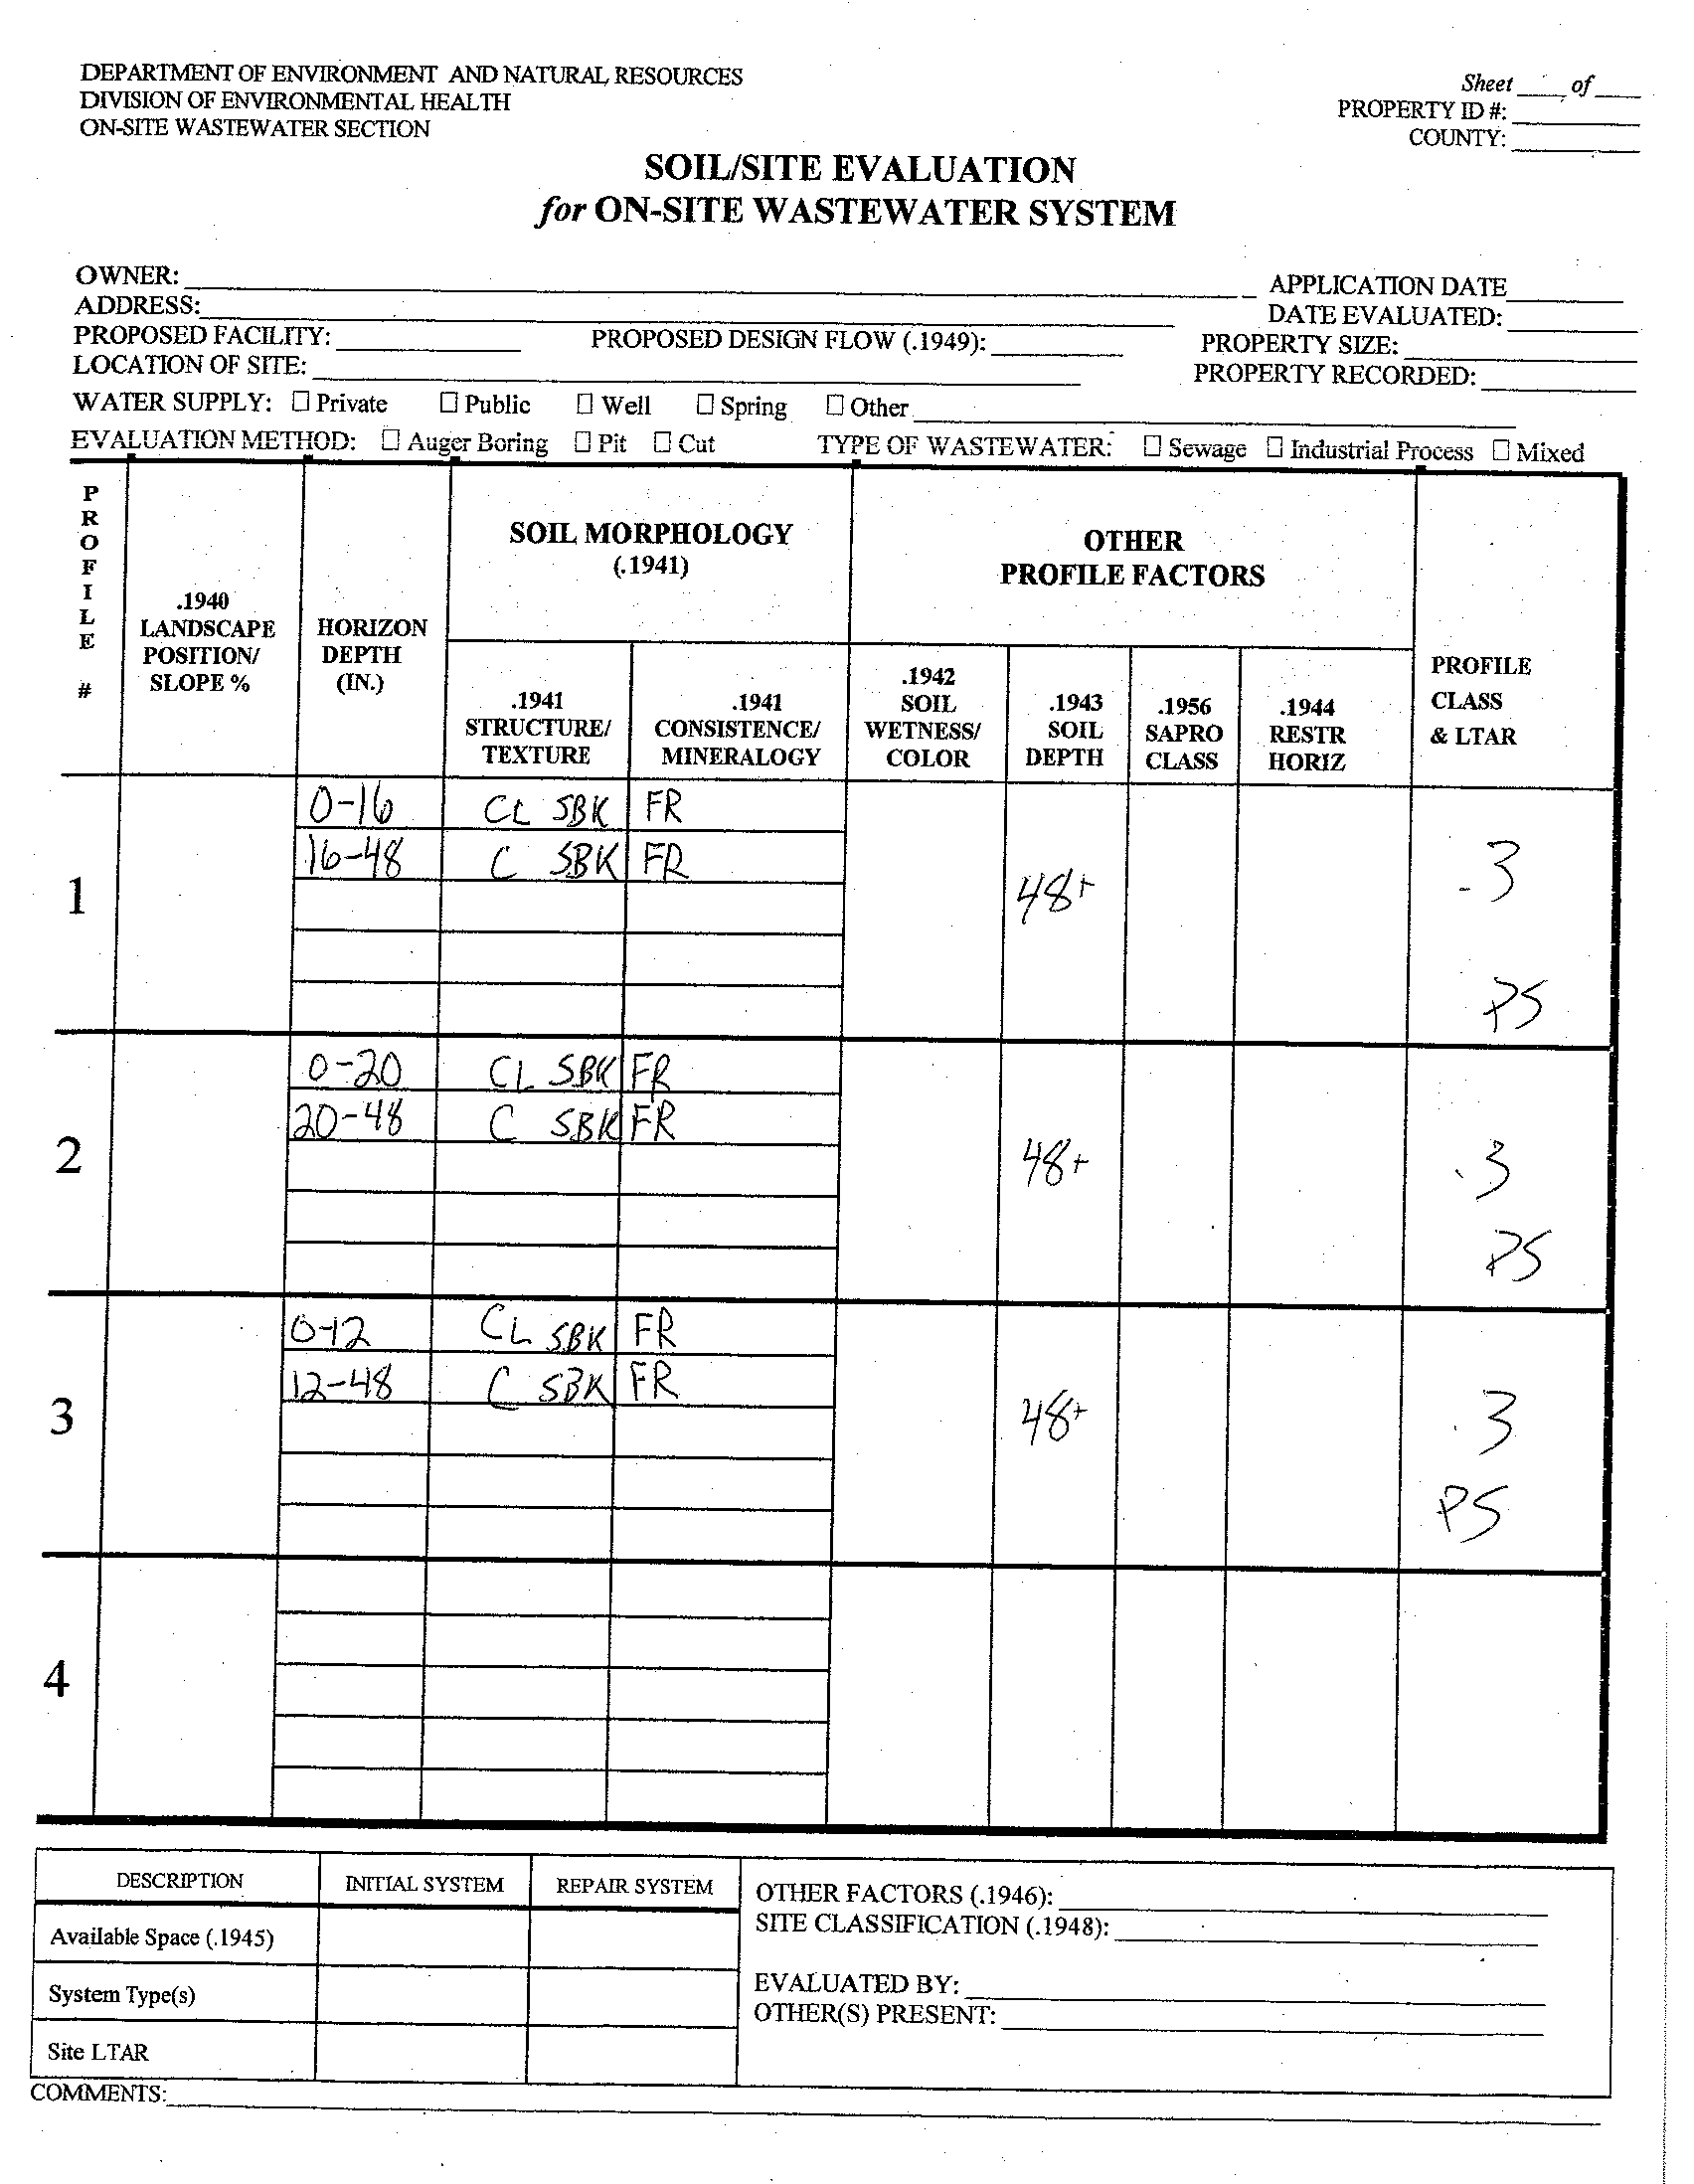 DEPARTMENT OF ENVIRONMENT AND NATURAL RESOURCES
DIVISION OF ENVIRONMENTAL HEALTH
ON-SITE WASTEWATER SECTION
Sheet ____ of ____
PROPERTY ID #: ________
COUNTY: ________
SOIL/SITE EVALUATION
for ON-SITE WASTEWATER SYSTEM
OWNER: ________
APPLICATION DATE ________
ADDRESS: ________
DATE EVALUATED: ________
PROPOSED FACILITY: ________ PROPOSED DESIGN FLOW (.1949): ________ PROPERTY SIZE: ________
LOCATION OF SITE: ________ PROPERTY RECORDED: ________
WATER SUPPLY: ☐ Private ☐ Public ☐ Well ☐ Spring ☐ Other ________
EVALUATION METHOD: ☐ Auger Boring ☐ Pit ☐ Cut TYPE OF WASTEWATER: ☐ Sewage ☐ Industrial Process ☐ Mixed
PROFILE #
.1940 LANDSCAPE POSITION/ SLOPE %
HORIZON DEPTH (IN.)
SOIL MORPHOLOGY
(.1941)
OTHER
PROFILE FACTORS
.1941 STRUCTURE/ TEXTURE
.1941 CONSISTENCE/ MINERALOGY
.1942 SOIL WETNESS/ COLOR
.1943 SOIL DEPTH
.1956 SAPRO CLASS
.1944 RESTR HORIZ
PROFILE CLASS & LTAR
1
0-16 CL SBK FR
16-48 C SBK FR
48+
.3
PS
2
0-20 CL SBK FR
20-48 C SBK FR
48+
.3
PS
3
0-12 CL SBK FR
12-48 C SBK FR
48+
.3
PS
4
DESCRIPTION INITIAL SYSTEM REPAIR SYSTEM
Available Space (.1945)
System Type(s)
Site LTAR
OTHER FACTORS (.1946): ________
SITE CLASSIFICATION (.1948): ________
EVALUATED BY: ________
OTHER(S) PRESENT: ________
COMMENTS: ________